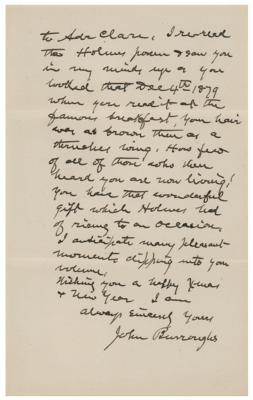 to Ada Clare, I reread
that Holmes poem & saw you
in my minds eye as you
looked that Dec 4th 1879
when you read it at the
famous breakfast, your hair
was as brown then as a
thrushes wing. How few
of all of those who then
heard you are now living!
You have that wonderful
gift which Holmes had
of rising to an occasion.
I anticipate many pleasant
moments dipping into your
volume.
Wishing you a happy Xmas
& New Year I am
always sincerely yours
John Burroughs